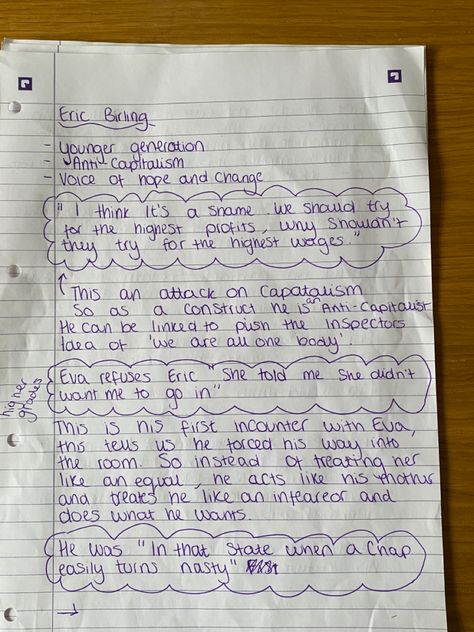 Eric Birling
- Younger generation
- Anti Capitalism
- Voice of hope and change
"I think it's a shame.. we should try
for the highest profits, why shouldn't
they try for the highest wages."
↑ This an attack on Capatalism
So as a construct he is an Anti-Capitalist
He can be linked to push the inspectors
Idea of 'we are all one body'.
higher grades
Eva refuses Eric "She told me she didn't
want me to go in"
This is his first incounter with Eva,
this tells us he forced his way into
the room. So instead of treating her
like an equal, he acts like his mother
and treates he like an infeareor and
does what he wants.
He was "In that state when a chap
easily turns nasty"
→